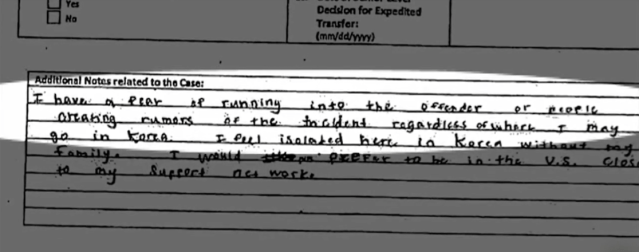 Yes
No
Decision for Expedited
Transfer:
(mm/dd/yyyy)
Additional Notes related to the Case:
I have a fear of running into the offender or people
creating rumors of the incident regardless of where I may
go in Korea. I feel isolated here in Korea without my
family. I would prefer to be in the U.S. clos
to my support net work.